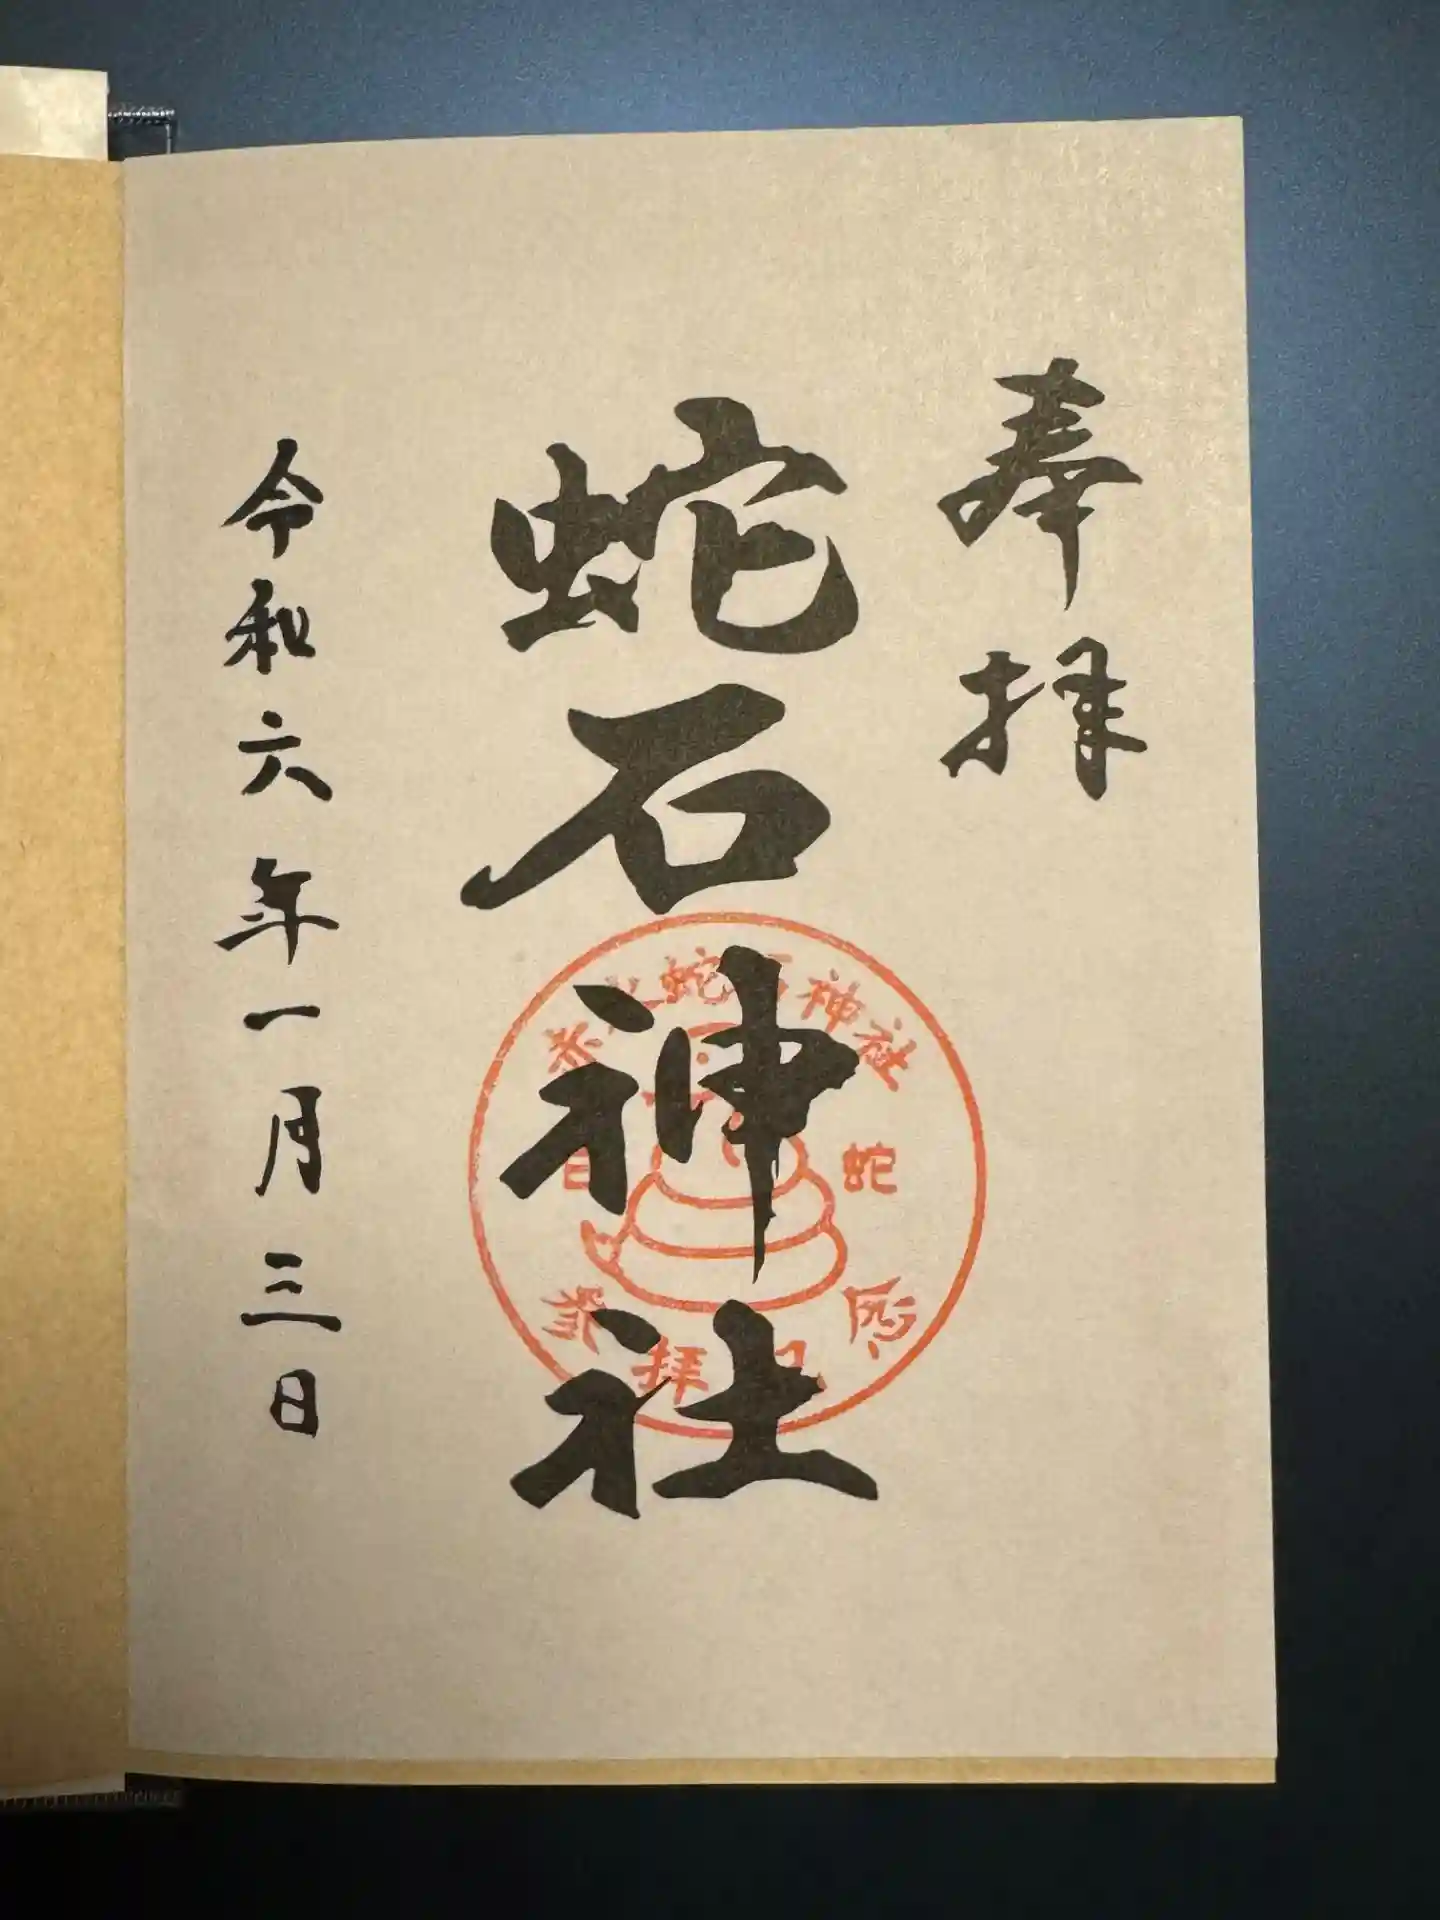 奉拝
蛇石神社
令和六年一月三日
蛇石神社
白 蛇
参拝記念